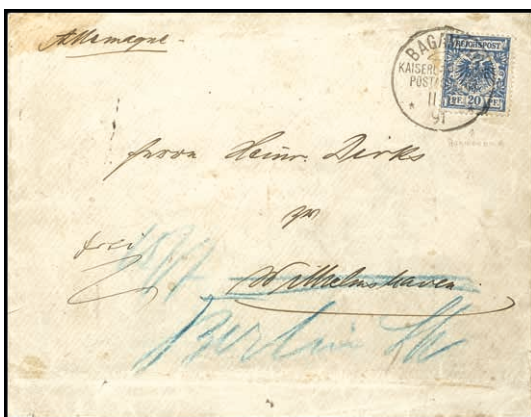 Allemagne
BAGA
KAISERL
POST
11
91
REICHSPOST
PF. 20 PF.
Herrn Heinr. Dirks
zu
frei
Wilhelmshaven
Berlin